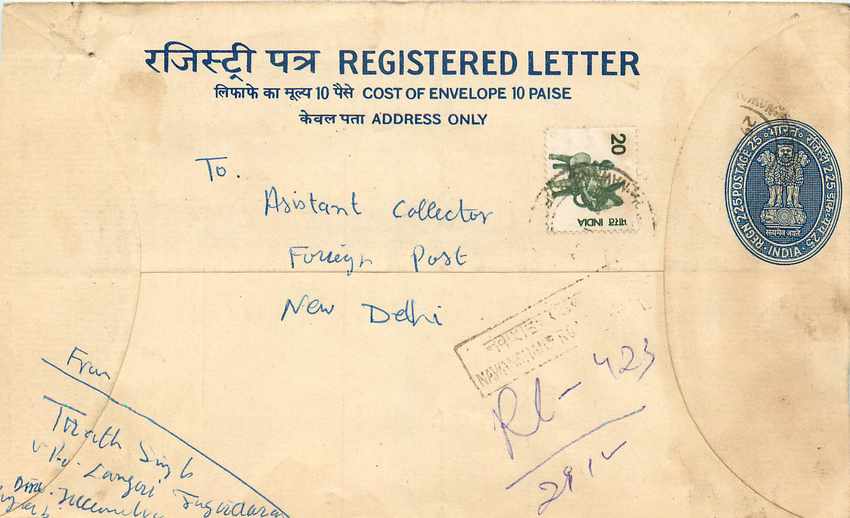 रजिस्ट्री पत्र REGISTERED LETTER
लिफाफे का मूल्य 10 पैसे COST OF ENVELOPE 10 PAISE
केवल पता ADDRESS ONLY
To.
Asistant Collector
Foreign Post
New Delhi
20
भारत INDIA
भारत रजिस्ट्री 225 डाक-व्यय 25
REGN. 225 POSTAGE 25
INDIA
सत्यमेव जयते
NAWANSHAHR
RL-423
From
Tirath Singh
V.P.O. Langeri